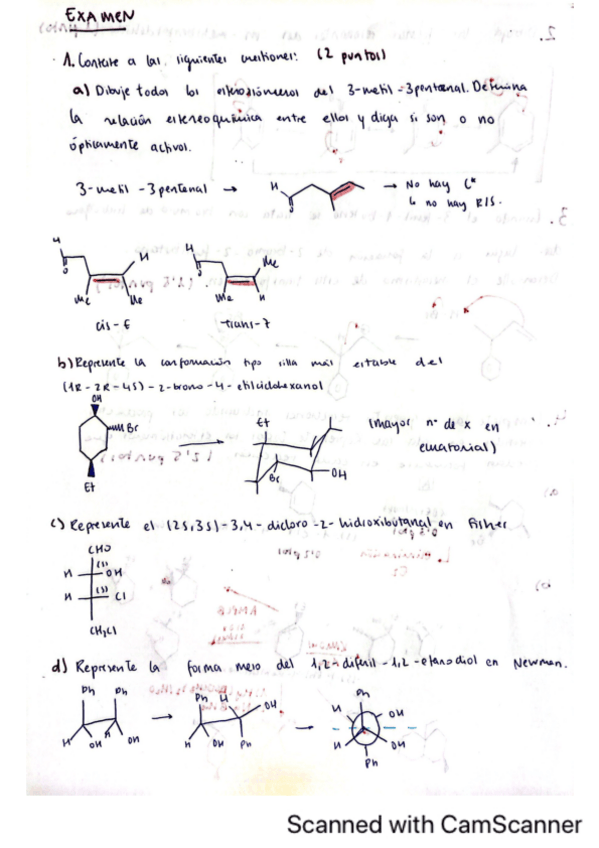 EXAMEN
1. Conteste a las siguientes cuestiones: (2 puntos)
a) Dibuje todos los estereoisómeros del 3-metil-3pentenal. Determina
la relación estereoquímica entre ellos y diga si son o no
ópticamente activos.
3-metil-3pentenal → H O → No hay C*
↳ no hay R/S.
H O H Me Me
H O Me Me H
cis-E trans-Z
b) Represente la conformación tipo silla más estable del
(1R-2R-4S)-2-bromo-4-etilciclohexanol
OH Br Et
Et Br OH
(mayor nº de x en
ecuatorial)
c) Represente el (2S,3S)-3,4-dicloro-2-hidroxibutanal en Fisher
CHO
H (S) OH
H (S) Cl
CH2Cl
d) Represente la forma meso del 1,2-difenil-1,2-etanodiol en Newman.
Ph Ph H OH H OH
Ph H OH H OH Ph
Ph H OH H OH Ph
Scanned with CamScanner